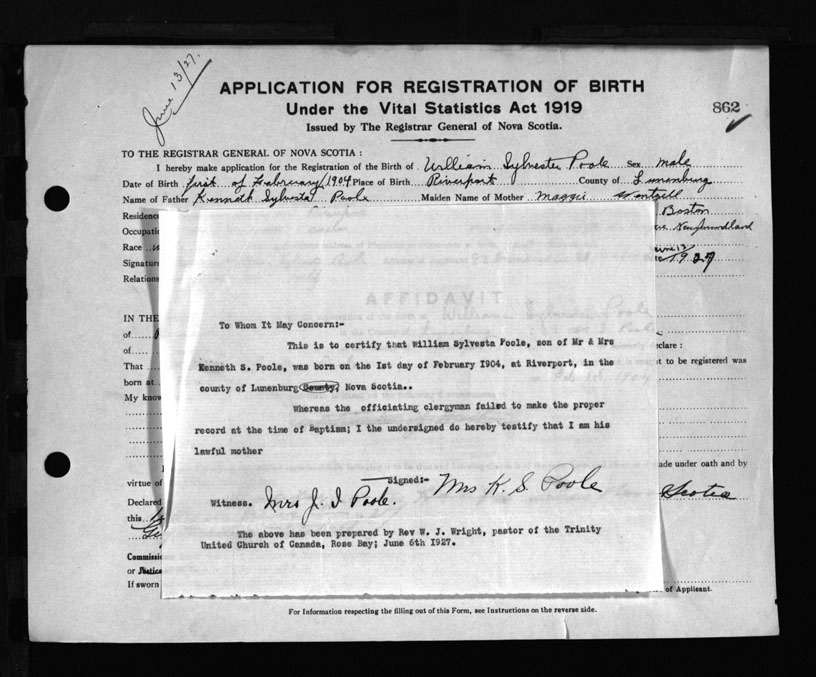 June 13/27.
APPLICATION FOR REGISTRATION OF BIRTH
Under the Vital Statistics Act 1919
862
Issued by The Registrar General of Nova Scotia.
TO THE REGISTRAR GENERAL OF NOVA SCOTIA :
I hereby make application for the Registration of the Birth of William Sylvester Poole Sex male
Date of Birth first of February 1904 Place of Birth Riverport County of Lunenburg
Name of Father Kenneth Sylvesta Poole Maiden Name of Mother Maggie
Residence Boston
Occupatio Newfoundland
Race
Signature 1927
Relations
AFFIDAVIT
To Whom It May Concern:-
IN THE
This is to certify that William Sylvesta Poole, son of Mr & Mrs
of
of clare :
Kenneth S. Poole, was born on the 1st day of February 1904, at Riverport, in the
That t to be registered was
born at
county of Lunenburg County, Nova Scotia..
My know
Whereas the officiating clergyman failed to make the proper
record at the time of Baptism; I the undersigned do hereby testify that I am his
lawful mother
ade under oath and by
Signed:- Mrs K. S. Poole
virtue of
Declared Scotia
Witness. Mrs J. I Poole.
this
The above has been prepared by Rev W. J. Wright, pastor of the Trinity
United Church of Canada, Rose Bay; June 6th 1927.
Commissi
or Justice
If sworn of Applicant.
For Information respecting the filling out of this Form, see Instructions on the reverse side.